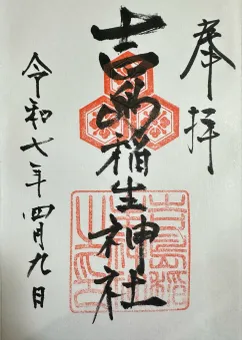 奉拝
吉島稲生神社
令和七年四月九日